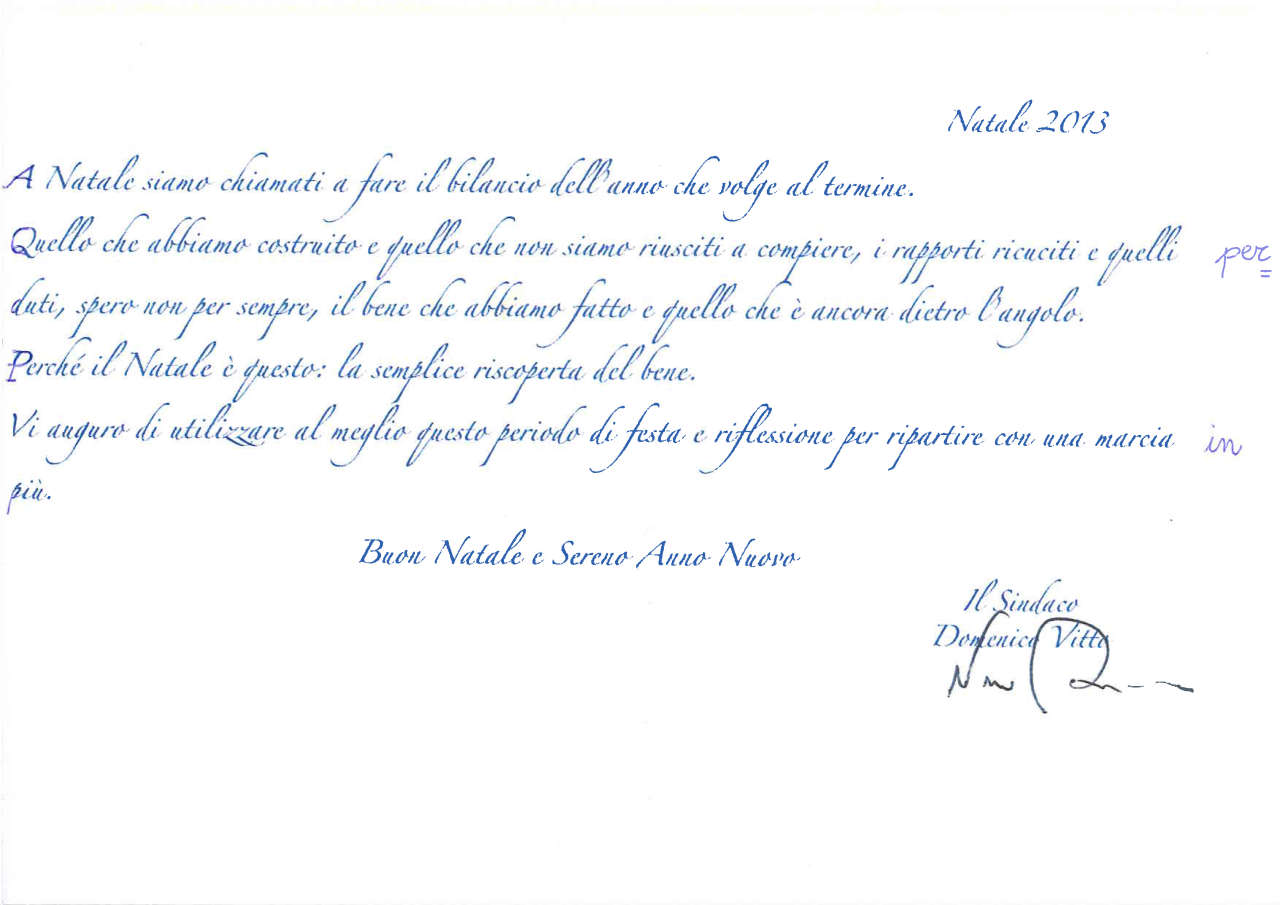 Natale 2013
A Natale siamo chiamati a fare il bilancio dell'anno che volge al termine.
Quello che abbiamo costruito e quello che non siamo riusciti a compiere, i rapporti ricuciti e quelli per=
duti, spero non per sempre, il bene che abbiamo fatto e quello che è ancora dietro l'angolo.
Perché il Natale è questo: la semplice riscoperta del bene.
Vi auguro di utilizzare al meglio questo periodo di festa e riflessione per ripartire con una marcia in
più.
Buon Natale e Sereno Anno Nuovo
Il Sindaco
Domenico Vitto